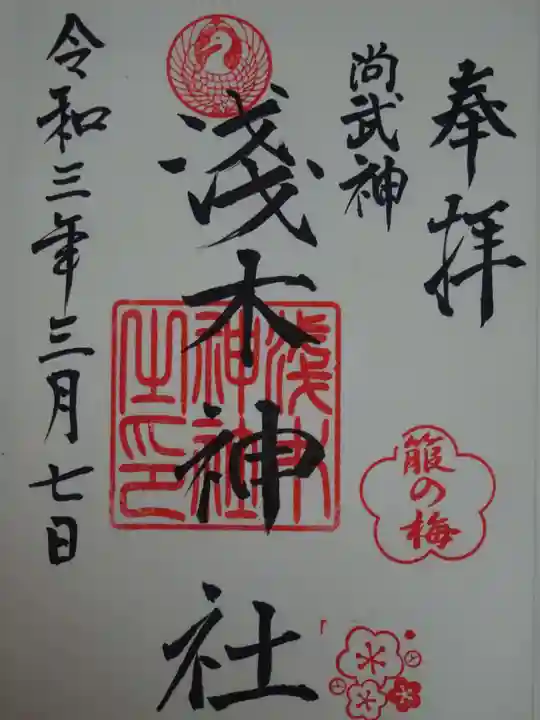 奉拝
尚武神
淺木神社
令和三年三月七日
淺木
神社
之印
箙の梅